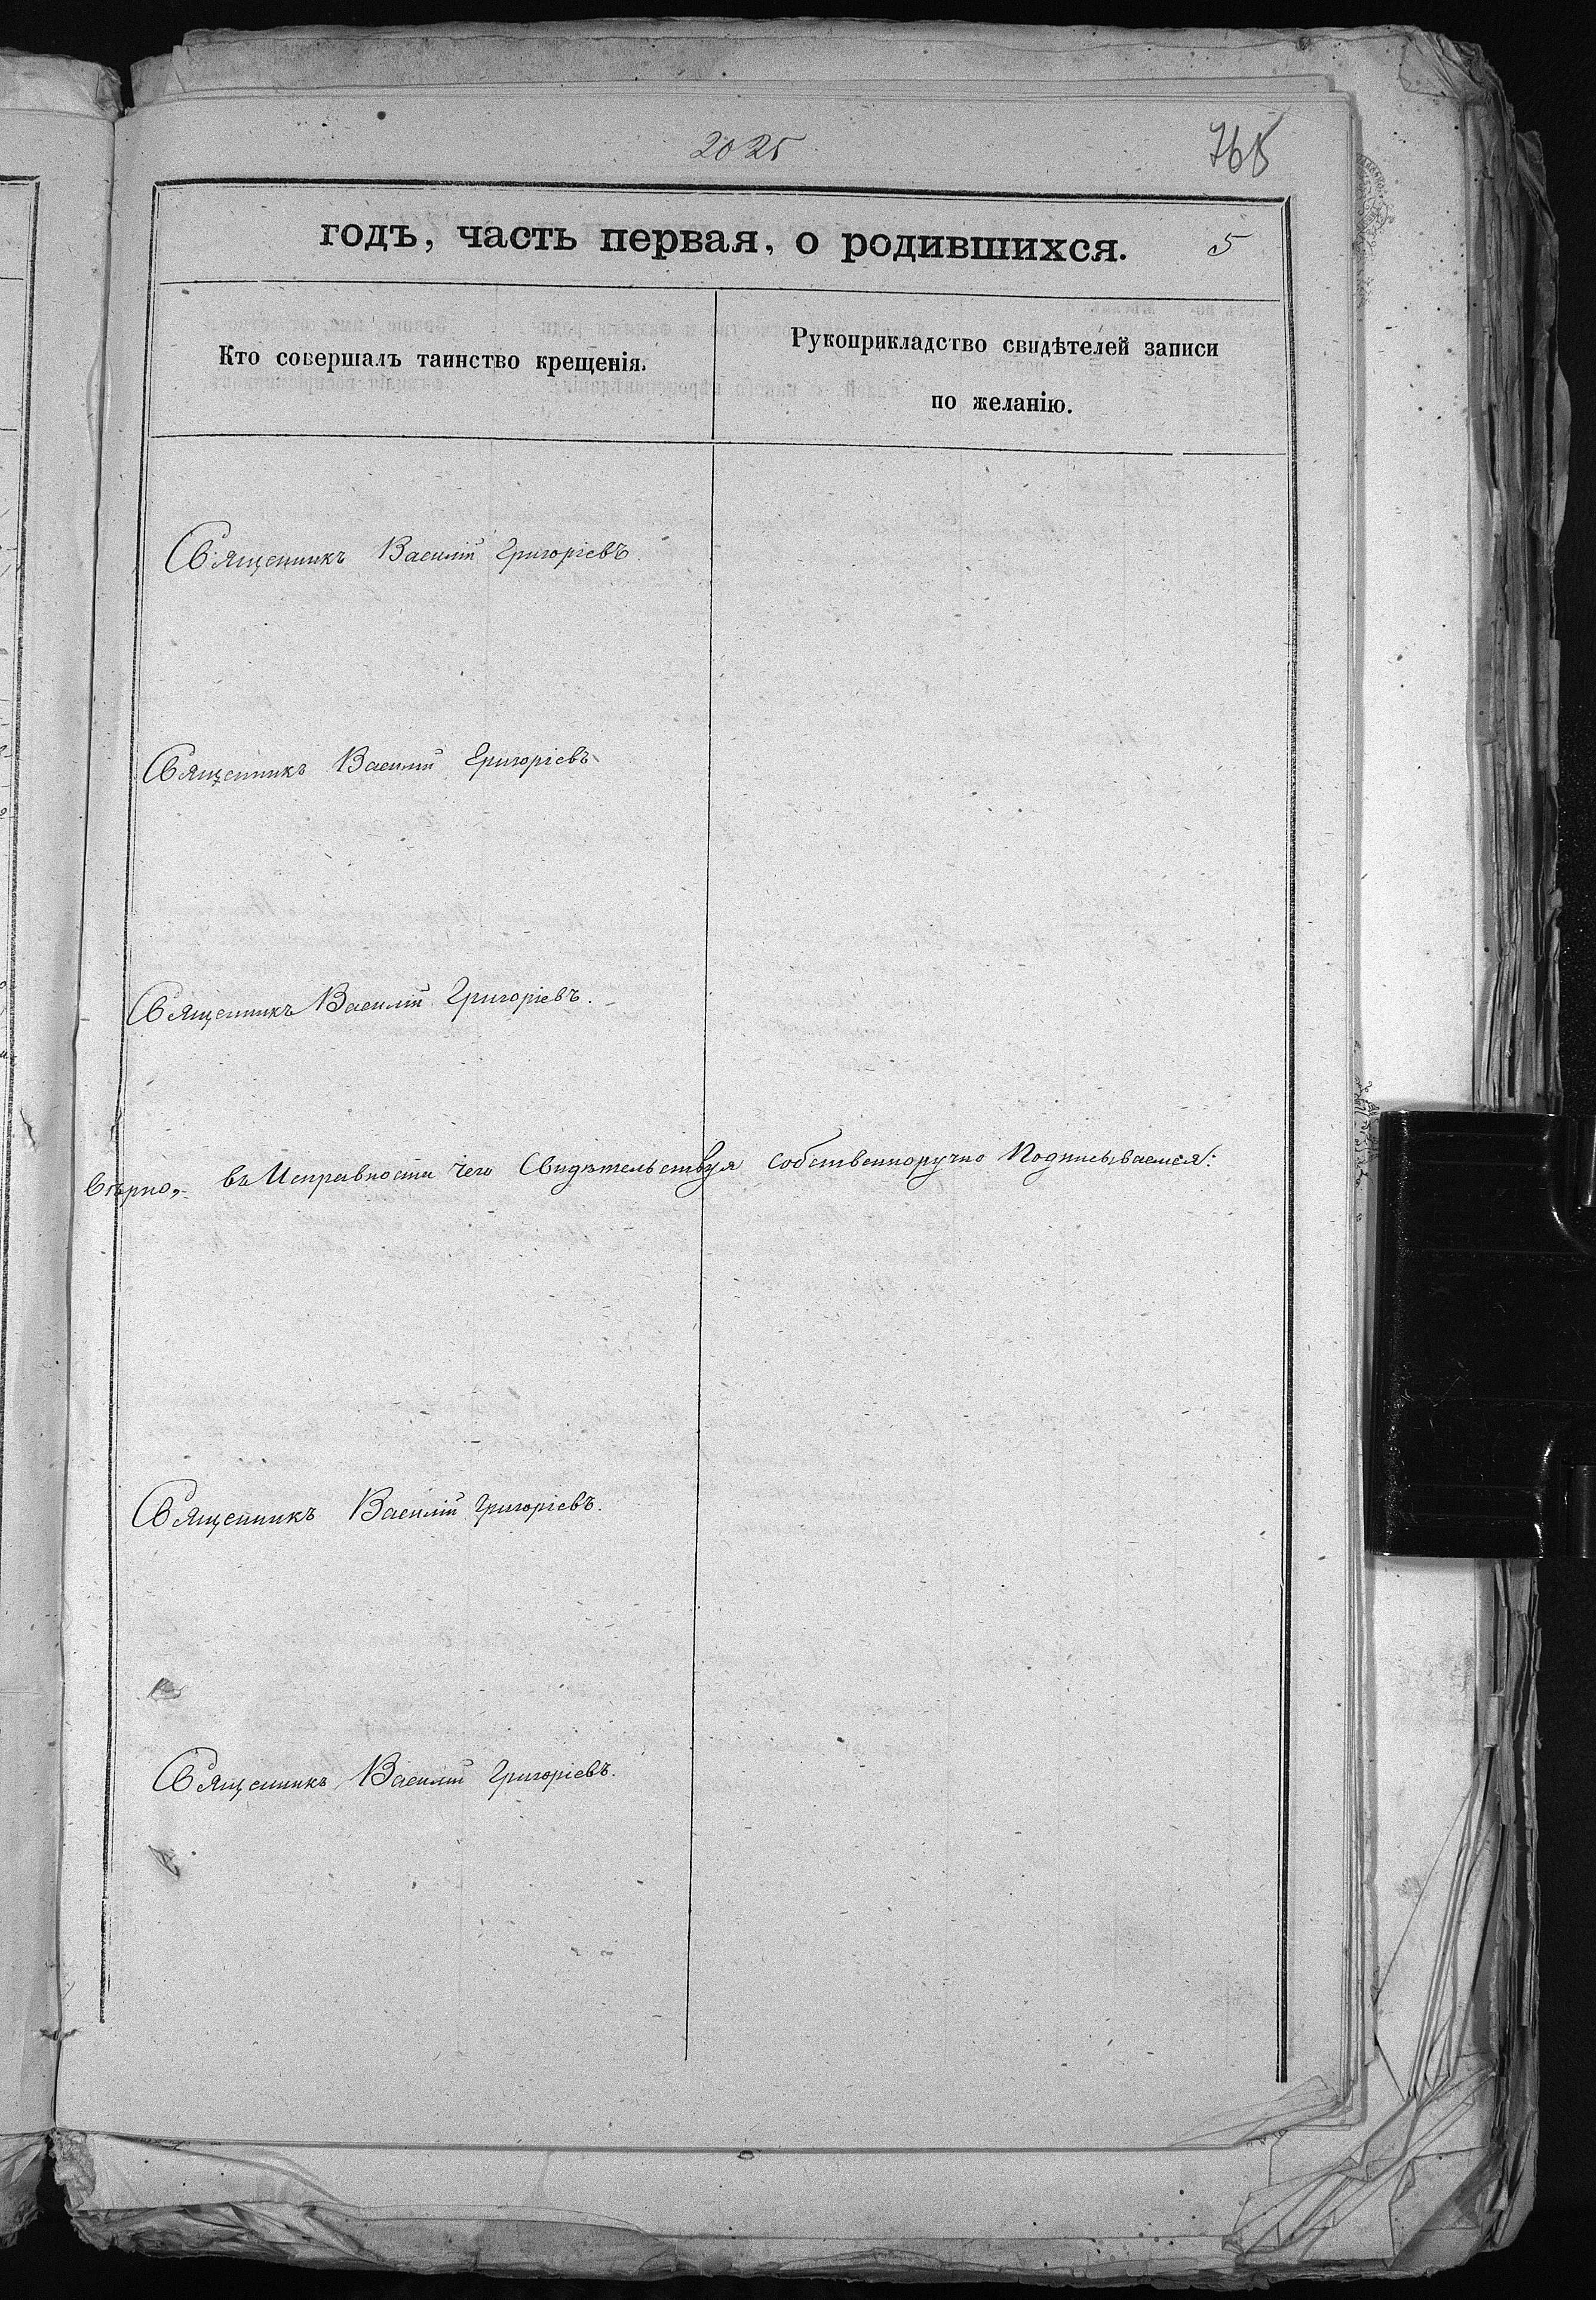 2025
годъ, часть первая, о родившихся.
5
Кто совершалъ таинство крещенія.
Рукоприкладство свидѣтелей записи
по желанію.
Священникъ Василій Григоріевъ
Священникъ Василій Григоріевъ
Священникъ Василій Григоріевъ.
Вѣрно, въ Исправности чего Свидѣтельствуя собственноручно Подписываемся:
Священникъ Василій Григоріевъ.
Священникъ Василій Григоріевъ.